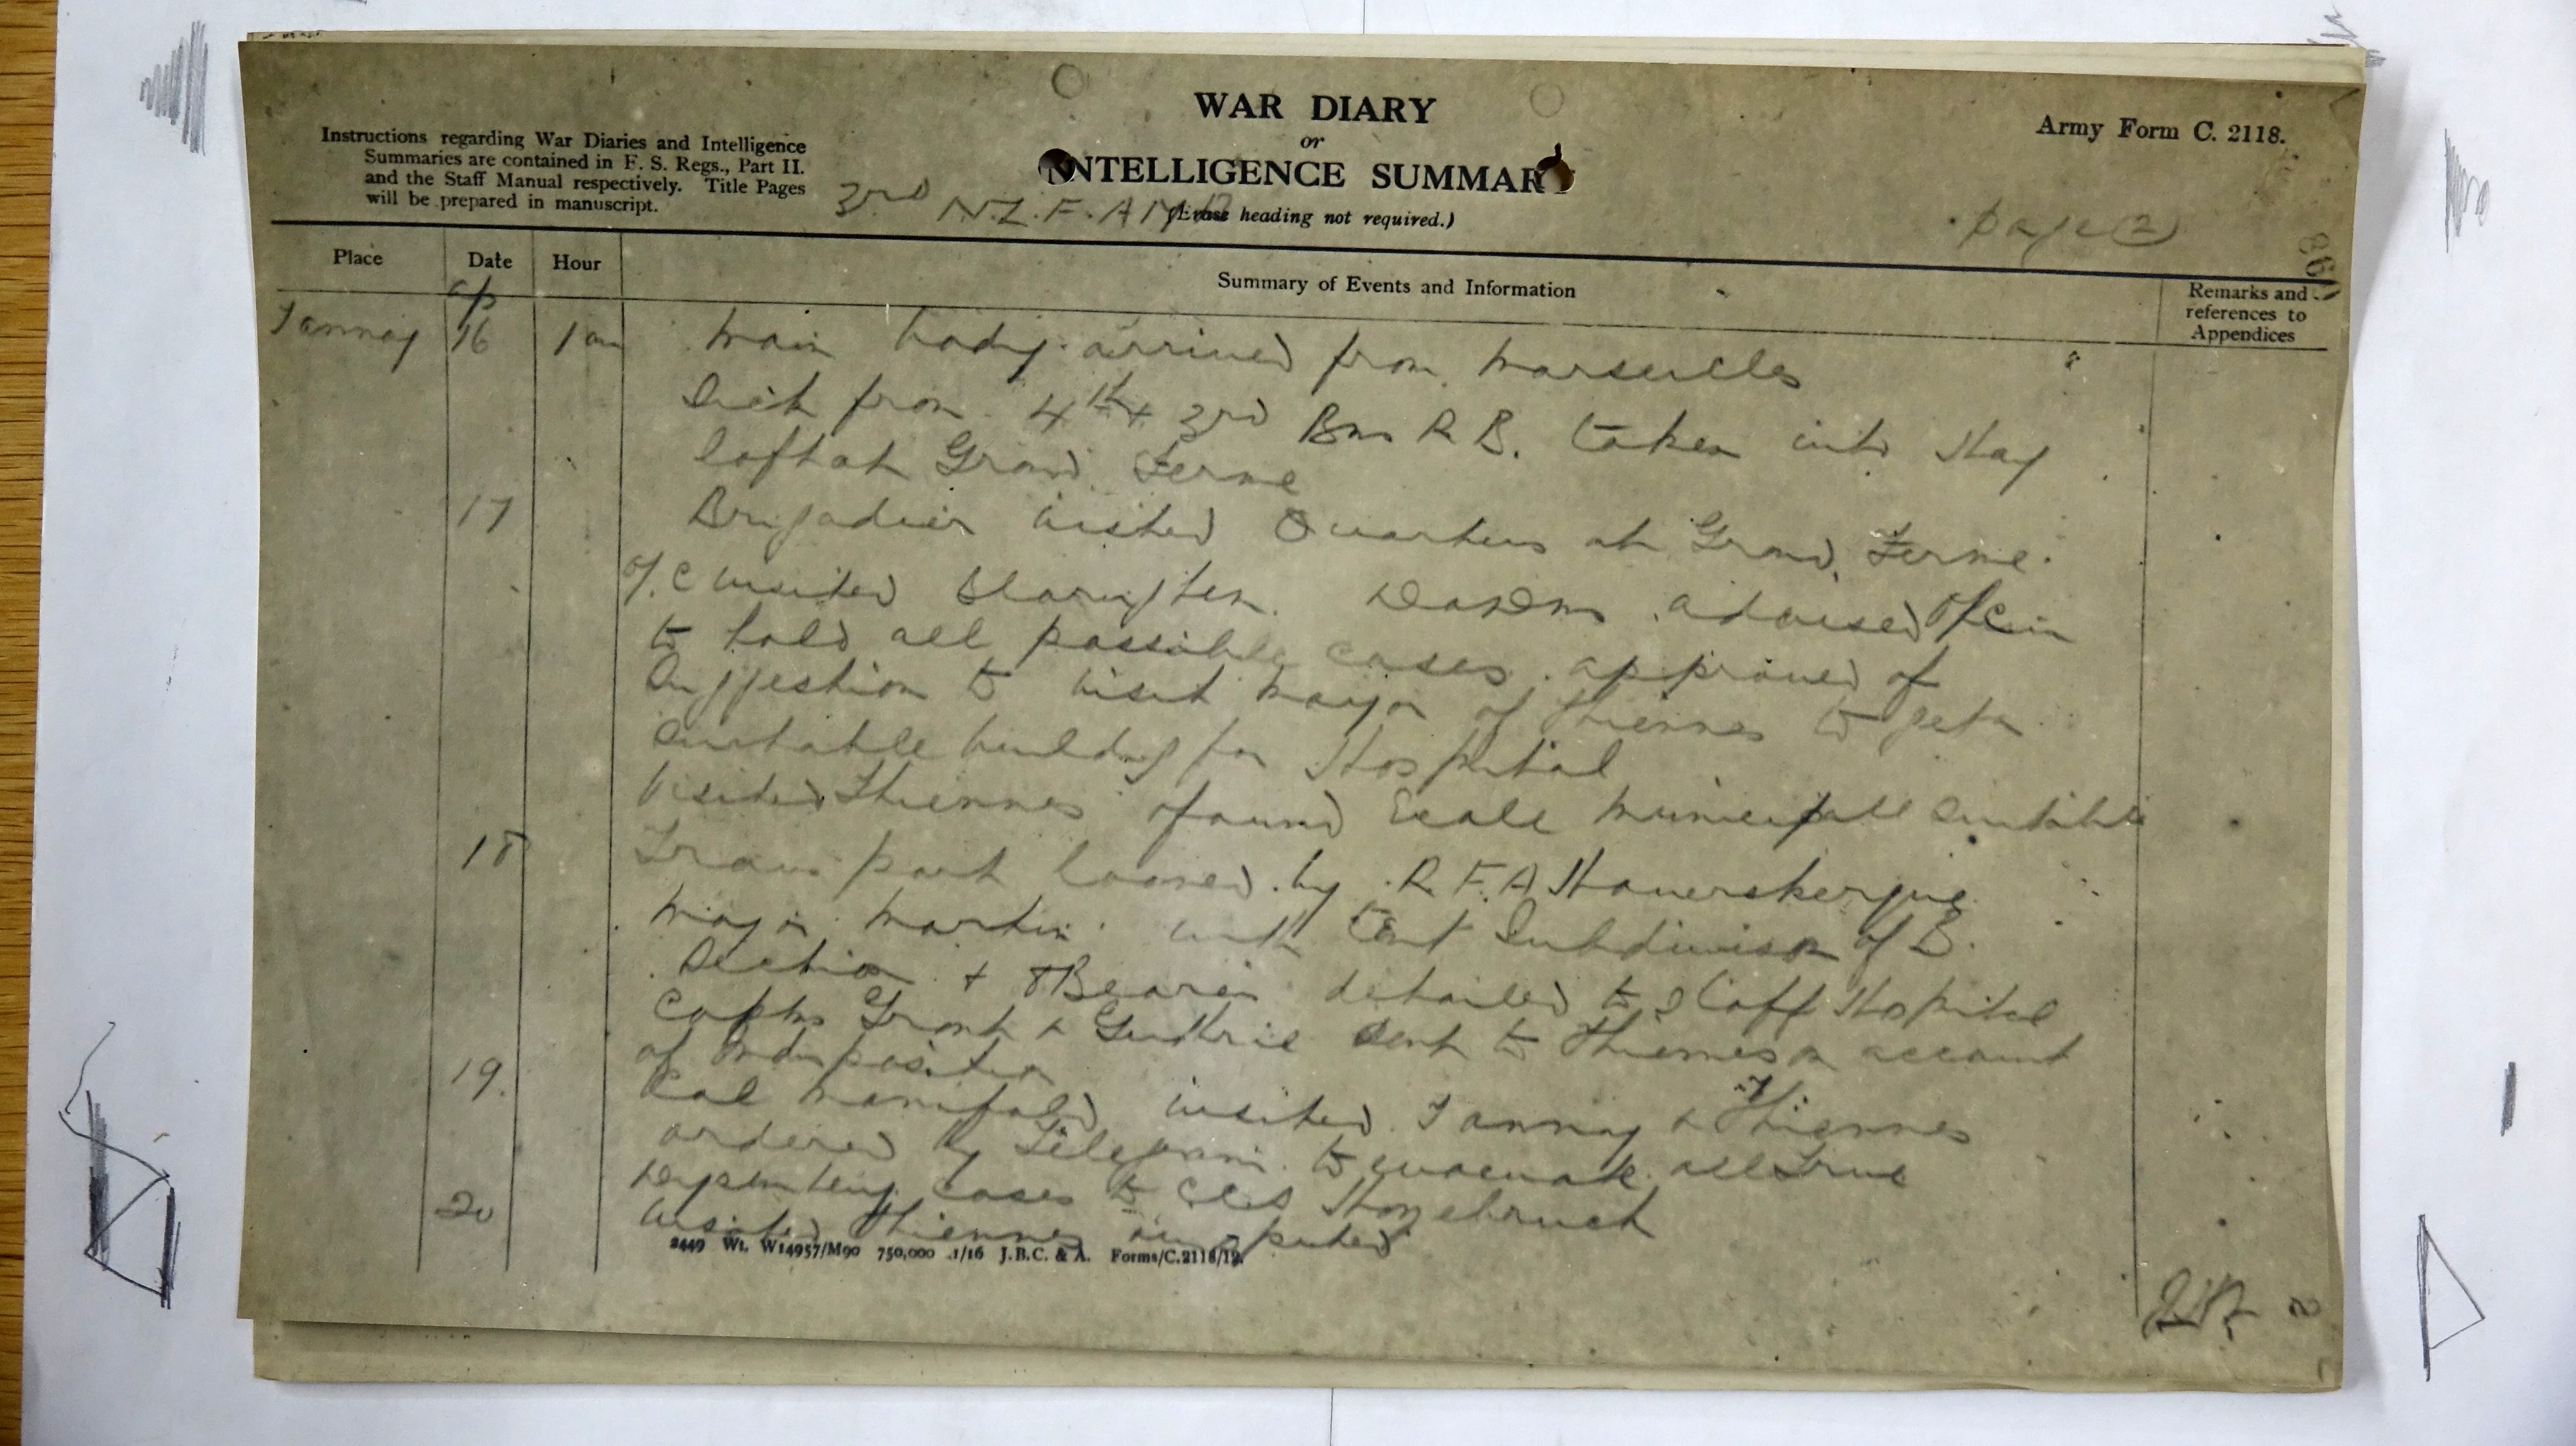 WAR DIARY
or
INTELLIGENCE SUMMARY
(Erase heading not required.)
Army Form C. 2118.
Instructions regarding War Diaries and Intelligence
Summaries are contained in F. S. Regs., Part II.
and the Staff Manual respectively. Title Pages
will be prepared in manuscript.
3rd N.Z.F. AMB
page (2)
Place
Date
Hour
Summary of Events and Information
Remarks and
references to
Appendices
Ap
Tannay 16 1 am Main body arrived from Marseilles
Sick from 4th + 3rd Bns R B. taken into Hay
loft at Grand Ferme
17 Brigadier visited Quarters at Grand Ferme.
O/.C visited. DADMS advised O/C in
to hold all possible cases. approved of
Suggestion to visit Mayor of Thiennes to get a
suitable building for Hospital
Visited Thiennes found Ecole Municipale suitable
18 Transport loaned by R.F.A Haverskerque
Major Martin with tent Subdivision of B.
Section + 8 Bearers detailed to staff Hospital
Capts Grant + Guthrie sent to Thiennes on account
of Indisposition
19. Col Manifold visited Tannay + Thiennes
ordered by Telegram to evacuate all true
Dysentery cases to CCS Hazebruck
20 Visited Thiennes
2449 Wt. W14957/M90 750,000 1/16 J.B.C. & A. Forms/C.2118/12.
2